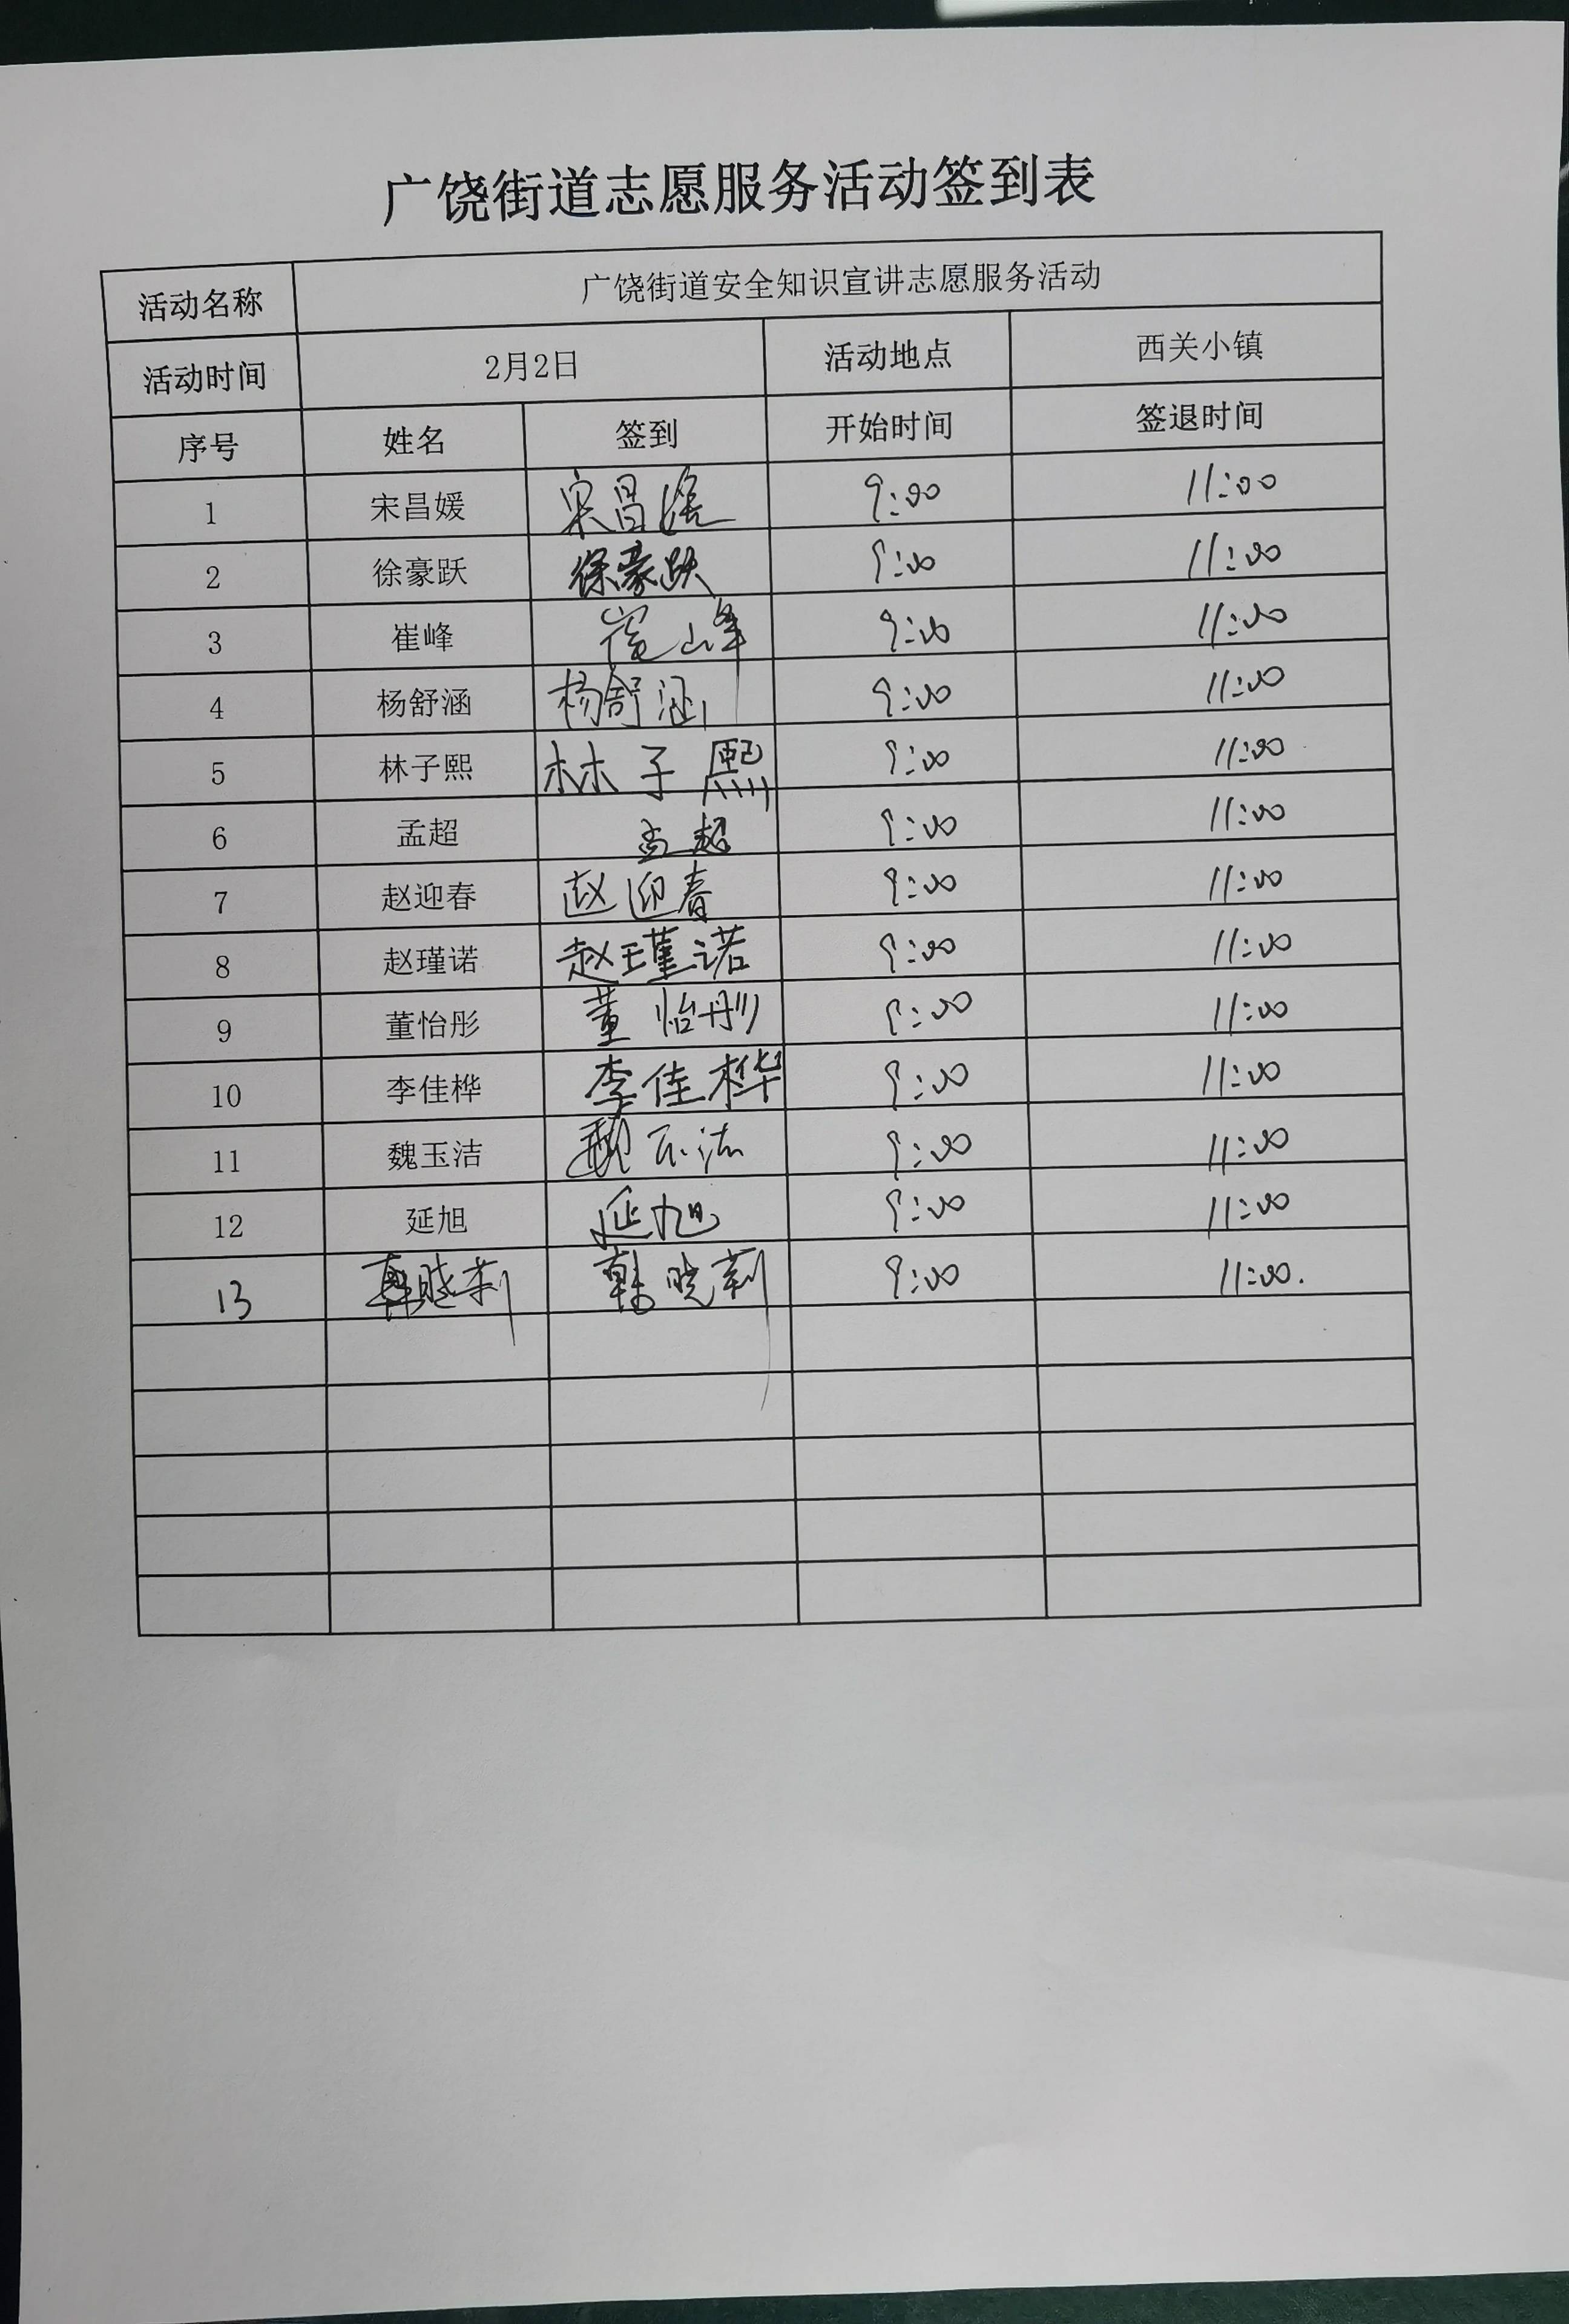 广饶街道志愿服务活动签到表
活动名称 广饶街道安全知识宣讲志愿服务活动
活动时间 2月2日 活动地点 西关小镇
序号 姓名 签到 开始时间 签退时间
1 宋昌媛 宋昌媛 9:00 11:00
2 徐豪跃 徐豪跃 9:00 11:00
3 崔峰 崔峰 9:00 11:00
4 杨舒涵 杨舒涵 9:00 11:00
5 林子熙 林子熙 9:00 11:00
6 孟超 孟超 9:00 11:00
7 赵迎春 赵迎春 9:00 11:00
8 赵瑾诺 赵瑾诺 9:00 11:00
9 董怡彤 董怡彤 9:00 11:00
10 李佳桦 李佳桦 9:00 11:00
11 魏玉洁 魏玉洁 9:00 11:00
12 延旭 延旭 9:00 11:00
13 韩晓莉 韩晓莉 9:00 11:00.